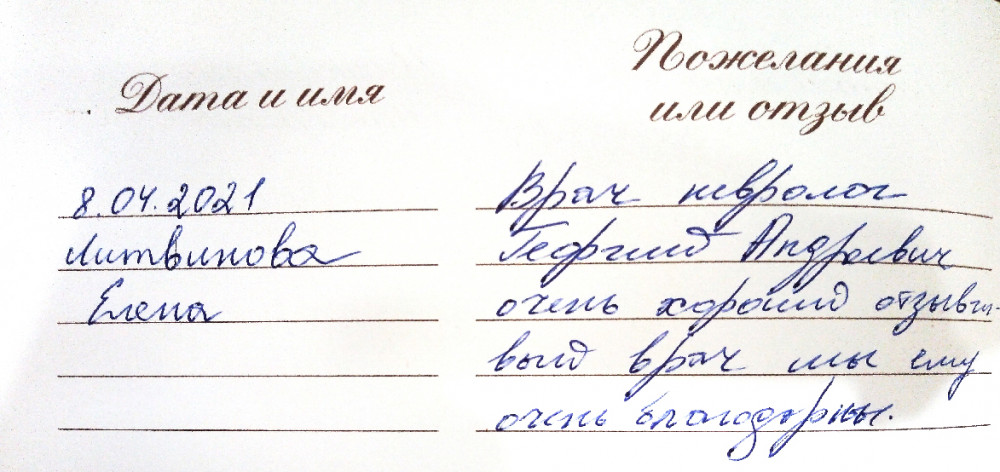 Дата и имя
Пожелания
или отзыв
8.04.2021
Литвинова
Елена
Врач невролог
Георгий Андреевич
очень хороший отзывчи-
вый врач мы ему
очень благодарны.